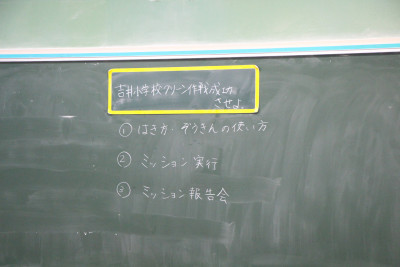 吉井小学校クリーン作戦を成功
させよ。
① はき方・ぞうきんの使い方
② ミッション実行
③ ミッション報告会